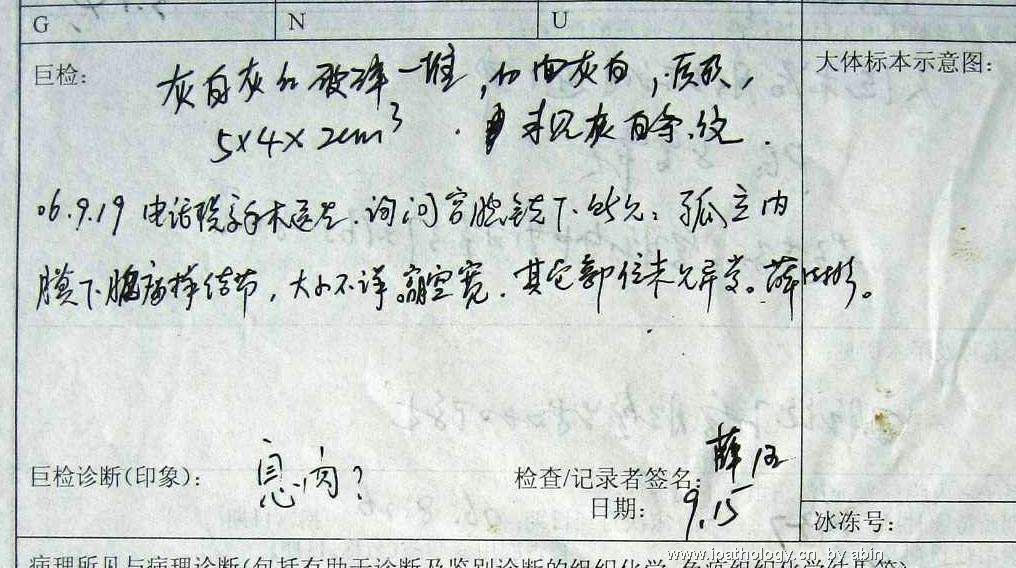 G N U
巨检: 大体标本示意图:
灰白灰红破碎一堆,切面灰白,质软,
5×4×2cm³. 未见灰白条纹.
06.9.19 电话 手术医生.询问宫腔镜下所见:孤立内
膜下 瘤样结节,大小不详. 宽.其它部位未见异常。薛
巨检诊断(印象): 息肉?
检查/记录者签名: 薛
日期: 9.15
冰冻号:
病理所见与病理诊断(包括有助于诊断及鉴别诊断的组织化学、免疫组织化学结果等)
www.ipathology.cn by abin